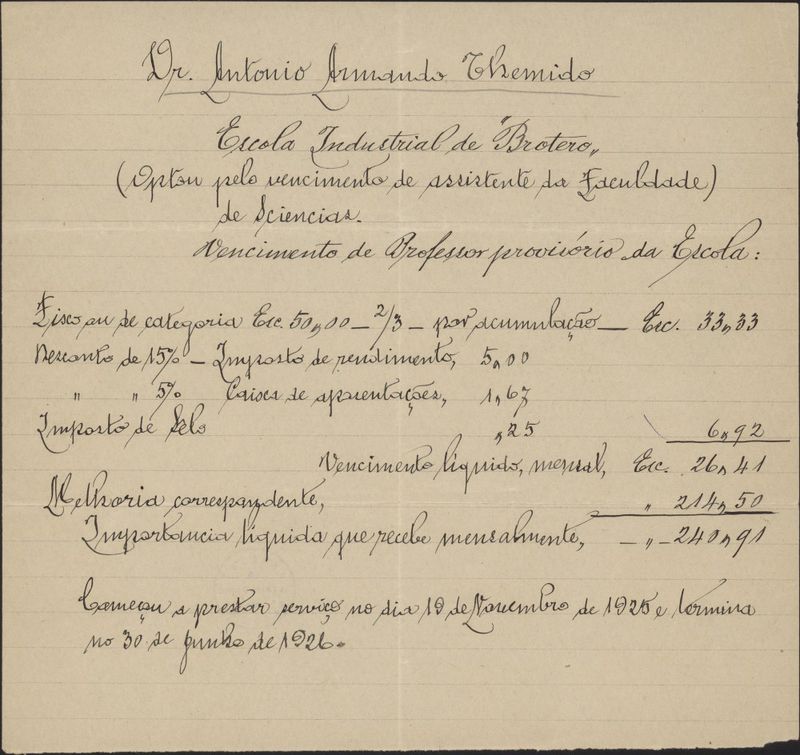 Dr. Antonio Armando Themido
Escola Industrial de "Brotero"
(Optou pelo vencimento de assistente da Faculdade)
de Sciencias.
Vencimento de Professor provisório da Escola:
de categoria Esc. 50,00 – 2/3 – por acumulação – Esc. 33,33
Desconto de 15% – Imposto de rendimento, 5,00
" " 5% Caisca de aposentações, 1,67
Imposto de Selo ,25 6,92
Vencimento líquido, mensal, Esc. 26,41
Melhoria correspondente, " 214,50
Importancia líquida que recebe mensalmente, – " – 240,91
Começou a prestar serviço no dia 19 de Novembro de 1925 e termina
no 30 de Junho de 1926.